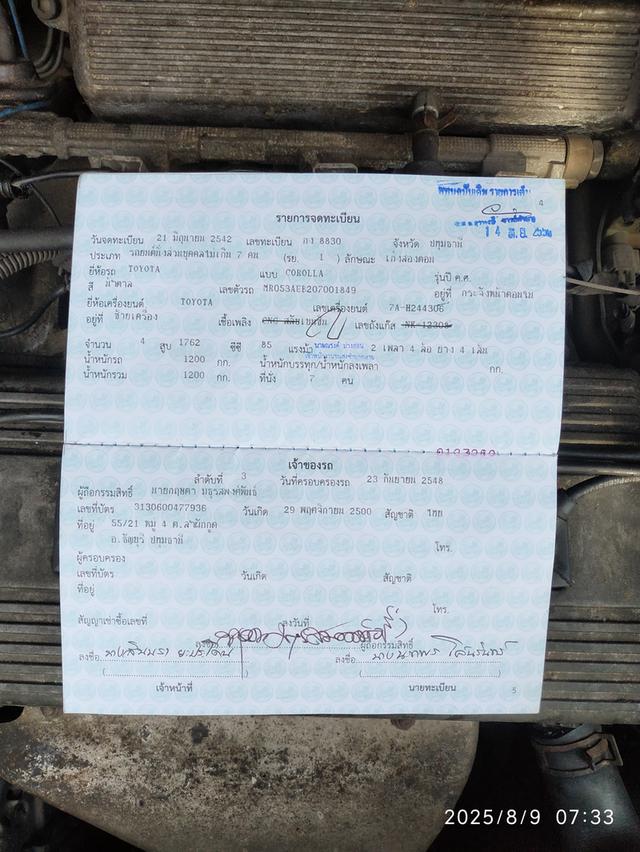 4
รายการจดทะเบียน
วันจดทะเบียน 21 มิถุนายน 2542 เลขทะเบียน 8830 จังหวัด ปทุมธานี
ประเภท รถยนต์นั่งส่วนบุคคลไม่เกิน 7 คน (รย. 1) ลักษณะ เก๋งสองตอน
ยี่ห้อรถ TOYOTA แบบ COROLLA รุ่นปี ค.ศ.
สี น้ำตาล เลขตัวรถ MR053AEB207001849 อยู่ที่ กระจังหน้าคอนมม
ยี่ห้อเครื่องยนต์ TOYOTA เลขเครื่องยนต์ 7A-H244306
อยู่ที่ ซ้ายเครื่อง เชื้อเพลิง CNG เลขถังแก๊ส NK-12308
จำนวน 4 สูบ 1762 ซีซี 85 แรงม้า 2 เพลา 4 ล้อ ยาง 4 เส้น
น้ำหนักรถ 1200 กก. น้ำหนักบรรทุก/น้ำหนักลงเพลา กก.
น้ำหนักรวม 1200 กก. ที่นั่ง 7 คน
เจ้าของรถ
ลำดับที่ 3 วันที่ครอบครองรถ 23 กันยายน 2548
ผู้ถือกรรมสิทธิ์ นายกฤษดา
เลขที่บัตร 3130600477936 วันเกิด 29 พฤศจิกายน 2500 สัญชาติ ไทย
ที่อยู่ 55/21 หมู่ 4 ต.ลำผักกูด
อ.ธัญบุรี ปทุมธานี โทร.
ผู้ครอบครอง
เลขที่บัตร วันเกิด สัญชาติ
ที่อยู่
โทร.
สัญญาเช่าซื้อเลขที่ ลงวันที่
ลงชื่อ ผู้ถือกรรมสิทธิ์
ลงชื่อ ลงชื่อ
เจ้าหน้าที่ นายทะเบียน
5
2025/8/9 07:33